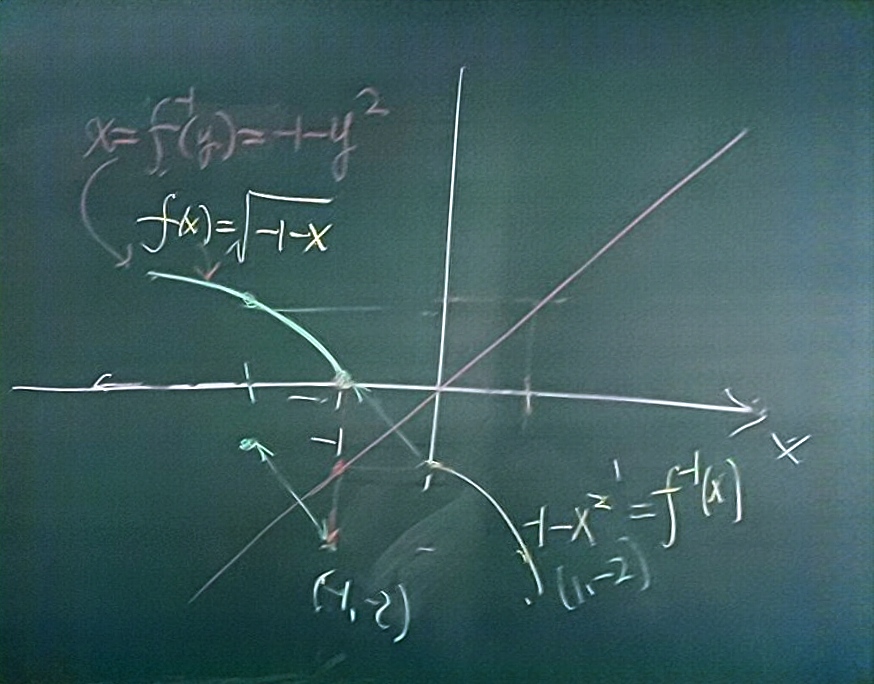 x=f⁻¹(y)=-1-y²
f(x)=√-1-x
-1
x
-1-x²=f⁻¹(x)
(1,-2)
(-1,-2)